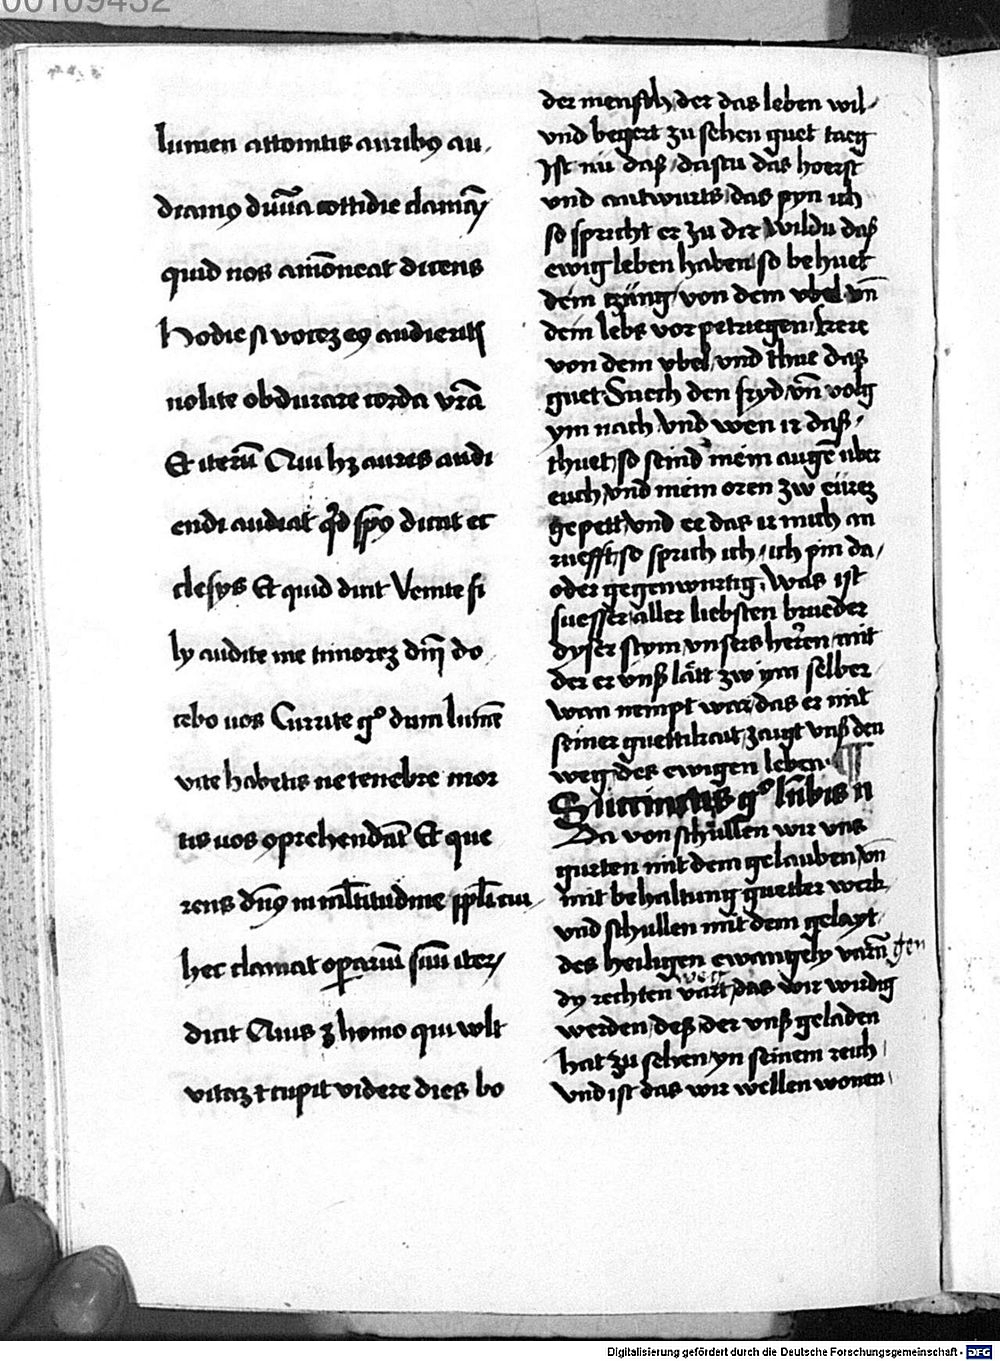 lumen attonitis auribꝯ au
diamꝯ diuīa cottidie clamās
quid nos amōneat dicens
Hodie si vocez eꝯ audieritis
nolite obdurare corda vr̄a
Et iterū Qui hꝫ aures audi
endi audiat qͥd spūs dicat ec
clesys Et quid dicit Venite fi
ly audite me timorez dn̄i do
cebo uos Currite gͦ dum lumē
vite habetis ne tenebre mor
tis uos ꝯprehendāt Et que
rens dn̄s in ml̄titudine ppl̄i cui
hec clamat oꝑarium suū iterꝫ
dicit Quis ꝫ homo qui vult
vitaꝫ et cupit videre dies bo
der mensch, der das leben wil
vnd begert zu sehen guet taeg
Ist nu daß, dastu das hoerst
vnd antwurts, das pyn ich
so spricht er zu dir Wildu daß
ewig leben haben so behuet
dein tzüng, von dem vbel vn̄
dein lebs vor petriegen, kere
von dem vbel, vnd thue daß
guet Suech den fryd, vn̄ volg
ym nach, Vnd wen ir daß
thuet, so seind mein augē vber
euch, vnd mein oren zw eürez
gepett, vnd ee das ir mich an
ruefft, so sprich ich, ich pin da,
oder gegenwurtig, Was ist
suesser aller liebsten brueder
dyser stym, vnsers herren, mit
der er vnß lätt zw ym selber
wan nempt war, das er mit
seiner guettikait, zaigt vnß den
weg des ewigen leben. ¶
Succinctis gͦ lūbis n
Da von schüllen wir vns
gurten mit dem gelauben, vn̄
mit behaltung guetter werk
vnd schullen mit dem gelayt
des heiligen ewangely varn̄ gen
weg
dy rechten vart, das wir wirdig
werden, deß, der vnß geladen
hat zu sehen, yn seinem reich
Vnd ist das wir wellen wonen
Digitalisierung gefördert durch die Deutsche Forschungsgemeinschaft - DFG